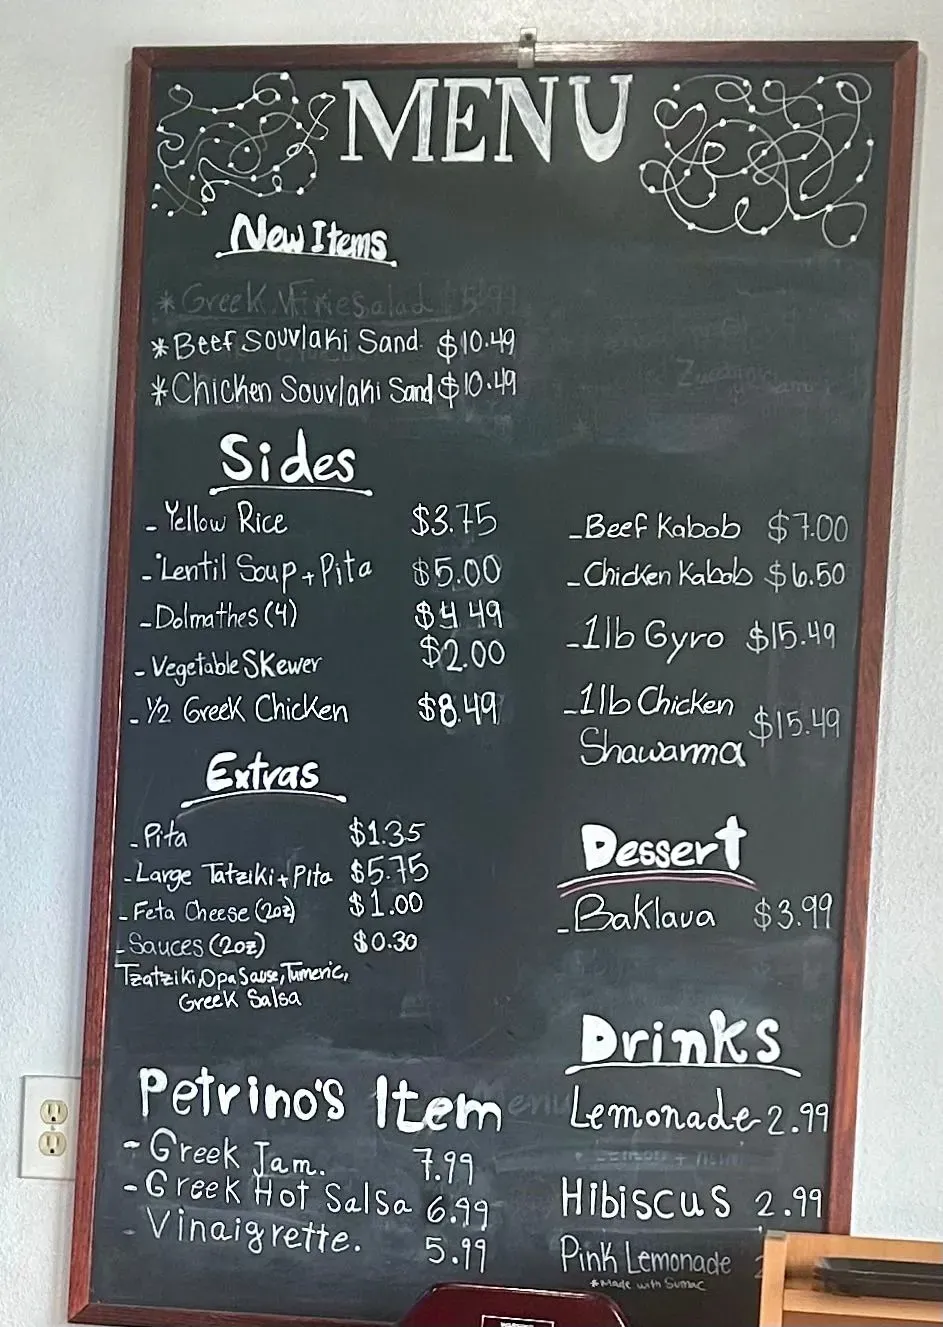 MENU
New Items
* Greek Fries
* Beef Souvlaki Sand. $10.49
* Chicken Souvlaki Sand $10.49
Sides
- Yellow Rice $3.75
- Lentil Soup + Pita $5.00
- Dolmathes (4) $4.49
- Vegetable Skewer $2.00
- 1/2 Greek Chicken $8.49
- Beef Kabob $7.00
- Chicken Kabob $6.50
- 1lb Gyro $15.49
- 1lb Chicken
Shawarma $15.49
Extras
- Pita $1.35
- Large Tatziki + Pita $5.75
- Feta Cheese (2oz) $1.00
- Sauces (2oz) $0.30
Tzatziki, Opa Sause, Tumeric,
Greek Salsa
Dessert
- Baklava $3.99
Petrino's Item
- Greek Jam. 7.99
- Greek Hot Salsa 6.99
- Vinaigrette. 5.99
Drinks
Lemonade 2.99
Hibiscus 2.99
Pink Lemonade
*Made with Sumac